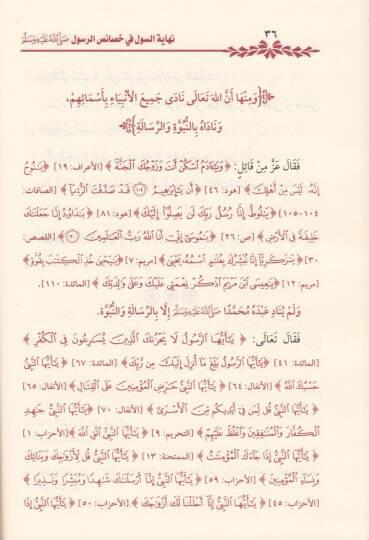 ٣٦ نهاية السول في خصائص الرسول ﷺ
﴿وَمِنْهَا أَنَّ اللهَ تَعَالَى نَادَى جَمِيعَ الْأَنْبِيَاءِ بِأَسْمَائِهِمْ،
وَنَادَاهُ بِالنُّبُوَّةِ وَالرِّسَالَةِ﴾
فَقَالَ عَزَّ مِنْ قَائِلٍ: ﴿وَيَٰٓـَٔادَمُ ٱسْكُنْ أَنتَ وَزَوْجُكَ ٱلْجَنَّةَ﴾ [الأعراف: ١٩] ﴿يَٰنُوحُ
إِنَّهُۥ لَيْسَ مِنْ أَهْلِكَ﴾ [هود: ٤٦] ﴿أَن يَٰٓإِبْرَٰهِيمُ ﴿١٠٤﴾ قَدْ صَدَّقْتَ ٱلرُّءْيَآ﴾ [الصافات:
١٠٤-١٠٥] ﴿يَٰلُوطُ إِنَّا رُسُلُ رَبِّكَ لَن يَصِلُوٓا۟ إِلَيْكَ﴾ [هود: ٨١] ﴿يَٰدَاوُۥدُ إِنَّا جَعَلْنَٰكَ
خَلِيفَةً فِى ٱلْأَرْضِ﴾ [ص: ٢٦] ﴿يَٰمُوسَىٰٓ إِنِّىٓ أَنَا ٱللَّهُ رَبُّ ٱلْعَٰلَمِينَ ﴿٣٠﴾﴾ [القصص:
٣٠] ﴿يَٰزَكَرِيَّآ إِنَّا نُبَشِّرُكَ بِغُلَٰمٍ ٱسْمُهُۥ يَحْيَىٰ﴾ [مريم: ٧] ﴿يَٰيَحْيَىٰ خُذِ ٱلْكِتَٰبَ بِقُوَّةٍ﴾
[مريم: ١٢] ﴿يَٰعِيسَى ٱبْنَ مَرْيَمَ ٱذْكُرْ نِعْمَتِى عَلَيْكَ وَعَلَىٰ وَٰلِدَتِكَ﴾ [المائدة: ١١٠].
وَلَمْ يُنَادِ عَبْدَهُ مُحَمَّدًا ﷺ إِلَّا بِالرِّسَالَةِ وَالنُّبُوَّةِ.
فَقَالَ تَعَالَى: ﴿يَٰٓأَيُّهَا ٱلرَّسُولُ لَا يَحْزُنكَ ٱلَّذِينَ يُسَٰرِعُونَ فِى ٱلْكُفْرِ﴾
[المائدة: ٤١] ﴿يَٰٓأَيُّهَا ٱلرَّسُولُ بَلِّغْ مَآ أُنزِلَ إِلَيْكَ مِن رَّبِّكَ﴾ [المائدة: ٦٧] ﴿يَٰٓأَيُّهَا ٱلنَّبِىُّ
حَسْبُكَ ٱللَّهُ﴾ [الأنفال: ٦٤] ﴿يَٰٓأَيُّهَا ٱلنَّبِىُّ حَرِّضِ ٱلْمُؤْمِنِينَ عَلَى ٱلْقِتَالِ﴾ [الأنفال: ٦٥]
﴿يَٰٓأَيُّهَا ٱلنَّبِىُّ قُل لِّمَن فِىٓ أَيْدِيكُم مِّنَ ٱلْأَسْرَىٰٓ﴾ [الأنفال: ٧٠] ﴿يَٰٓأَيُّهَا ٱلنَّبِىُّ جَٰهِدِ
ٱلْكُفَّارَ وَٱلْمُنَٰفِقِينَ وَٱغْلُظْ عَلَيْهِمْ﴾ [التحريم: ٩] ﴿يَٰٓأَيُّهَا ٱلنَّبِىُّ ٱتَّقِ ٱللَّهَ﴾ [الأحزاب: ١]
﴿يَٰٓأَيُّهَا ٱلنَّبِىُّ إِذَا جَآءَكَ ٱلْمُؤْمِنَٰتُ﴾ [الممتحنة: ١٢] ﴿يَٰٓأَيُّهَا ٱلنَّبِىُّ قُل لِّأَزْوَٰجِكَ وَبَنَاتِكَ
وَنِسَآءِ ٱلْمُؤْمِنِينَ﴾ [الأحزاب: ٥٩] ﴿يَٰٓأَيُّهَا ٱلنَّبِىُّ إِنَّآ أَرْسَلْنَٰكَ شَٰهِدًا وَمُبَشِّرًا وَنَذِيرًا﴾
[الأحزاب: ٤٥] ﴿يَٰٓأَيُّهَا ٱلنَّبِىُّ إِنَّآ أَحْلَلْنَا لَكَ أَزْوَٰجَكَ﴾ [الأحزاب: ٥٠] ﴿يَٰٓأَيُّهَا ٱلنَّبِىُّ إِذَا